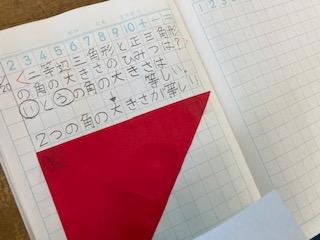 1 2 3 4 5 6 7 8 9 10 + 一 二 三
二等辺三角形と正三角形
の角の大きさのひみつは?
㋑と㋒の角の大きさは等しい。
2つの角の大きさが等しい!!